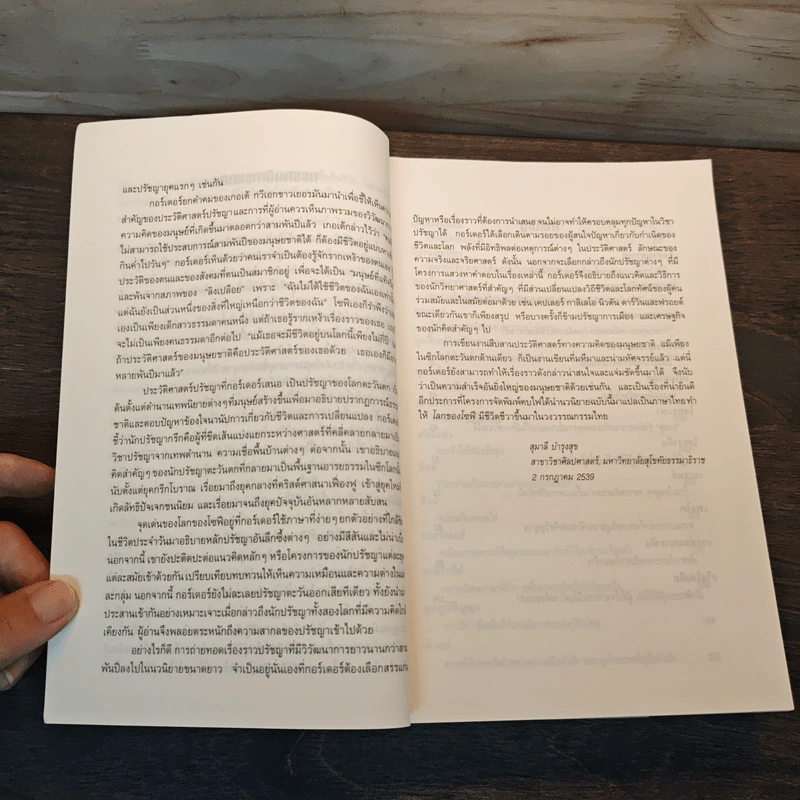 และปรัชญายุคแรกๆ เช่นกัน
กอร์เดอร์ยกคำคมของเกอเต้ กวีเอกชาวเยอรมันมานำเพื่อชี้ให้เห็นความ
สำคัญของประวัติศาสตร์ปรัชญาและการที่ผู้อ่านควรเห็นภาพรวมของวิวัฒนา
ความคิดของมนุษย์ที่เกิดขึ้นมาตลอดกว่าสามพันปีแล้ว เกอเต้กล่าวไว้ว่า
ไม่สามารถใช้ประสบการณ์สามพันปีของมนุษยชาติได้ ก็ต้องมีชีวิตอยู่แบบหา
กินค่ำไปวันๆ" กอร์เดอร์เห็นด้วยว่าคนเราจำเป็นต้องรู้จักรากเหง้าของตนเอง
ประวัติของตนและของสังคมที่ตนเป็นสมาชิกอยู่ เพื่อจะได้เป็น "มนุษย์ที่แท้
และพ้นจากสภาพของ "ลิงเปลือย" เพราะ "ฉันไม่ได้ใช้ชีวิตของฉันเองเท่านั้น
แต่ฉันยังเป็นส่วนหนึ่งของสิ่งที่ใหญ่เหนือกว่าชีวิตของฉัน" โซฟีเองก็รำพึงว่า
เองเป็นเพียงเด็กสาวธรรมดาคนหนึ่ง แต่ถ้าเธอรู้รากเหง้าเรื่องราวของเธอ เธอก็
จะไม่เป็นเพียงคนธรรมดาอีกต่อไป "แม้เธอจะมีชีวิตอยู่บนโลกนี้เพียงไม่กี่ปี
ถ้าประวัติศาสตร์ของมนุษยชาติคือประวัติศาสตร์ของเธอด้วย เธอเองก็มีอายุ
หลายพันปีมาแล้ว"
ประวัติศาสตร์ปรัชญาที่กอร์เดอร์เสนอ เป็นปรัชญาของโลกตะวันตก
ต้นตั้งแต่ตำนานเทพนิยายต่างๆ ที่มนุษย์สร้างขึ้นเพื่อมาอธิบายปรากฏการณ์ธรรม
ชาติและตอบปัญหาข้องใจนานัปการเกี่ยวกับชีวิตและการเปลี่ยนแปลง กอร์เดอร์
ชี้ว่านักปรัชญากรีกคือผู้ที่ขีดเส้นแบ่งแยกระหว่างศาสตร์ที่คลี่คลายกลายมาเป็น
วิชาปรัชญาจากเทพตำนาน ความเชื่อพื้นบ้านต่างๆ ต่อจากนั้น เขาอธิบายแนว
คิดสำคัญๆ ของนักปรัชญาตะวันตกที่กลายมาเป็นพื้นฐานอารยธรรมในซีกโลกนั้น
นับตั้งแต่ยุคกรีกโบราณ เรื่อยมาถึงยุคกลางที่คริสต์ศาสนาเฟื่องฟู เข้าสู่ยุคใหม่
เกิดลัทธิปัจเจกชนนิยม และเรื่อยมาจนถึงยุคปัจจุบันอันหลากหลายสับสน
จุดเด่นของโลกของโซฟีอยู่ที่กอร์เดอร์ใช้ภาษาที่ง่ายๆ ยกตัวอย่างที่ใกล้ชิด
ในชีวิตประจำวันมาอธิบายหลักปรัชญาอันลึกซึ้งต่างๆ อย่างมีสีสันและไม่น่าเบื่อ
นอกจากนี้ เขายังปะติดปะต่อแนวคิดหลักๆ หรือโครงการของนักปรัชญาแต่ละยุค
แต่ละสมัยเข้าด้วยกัน เปรียบเทียบทบทวนให้เห็นความเหมือนและความต่างในแต่
ละกลุ่ม นอกจากนี้ กอร์เดอร์ยังไม่ละเลยปรัชญาตะวันออกเสียทีเดียว ทั้งยังนำมา
ประสานเข้ากันอย่างเหมาะเจาะเมื่อกล่าวถึงนักปรัชญาทั้งสองโลกที่มีความคิดใกล้
เคียงกัน ผู้อ่านจึงพลอยตระหนักถึงความสากลของปรัชญาเข้าไปด้วย
อย่างไรก็ดี การถ่ายทอดเรื่องราวปรัชญาที่มีวิวัฒนาการยาวนานกว่าสาม
พันปีลงไปในนวนิยายขนาดยาว จำเป็นอยู่นั่นเองที่กอร์เดอร์ต้องเลือกสรรแก่น
ปัญหาหรือเรื่องราวที่ต้องการนำเสนอ จนไม่อาจทำให้ครอบคลุมทุกปัญหาในวิชา
ปรัชญาได้ กอร์เดอร์ได้เลือกเดินตามรอยของผู้สนใจปัญหาเกี่ยวกับกำเนิดของ
ชีวิตและโลก พลังที่มีอิทธิพลต่อเหตุการณ์ต่างๆ ในประวัติศาสตร์ ลักษณะของ
ความจริงและจริยศาสตร์ ดังนั้น นอกจากจะเลือกกล่าวถึงนักปรัชญาต่างๆ ที่มี
โครงการแสวงหาคำตอบในเรื่องเหล่านี้ กอร์เดอร์จึงอธิบายถึงแนวคิดและวิธีการ
ของนักวิทยาศาสตร์ที่สำคัญๆ ที่มีส่วนเปลี่ยนแปลงวิถีชีวิตและโลกทัศน์ของผู้คน
ร่วมสมัยและในสมัยต่อมาด้วย เช่น เคปเลอร์ กาลิเลโอ นิวตัน ดาร์วินและฟรอยด์
ขณะเดียวกันเขาก็เพียงสรุป หรือบางครั้งก็ข้ามปรัชญาการเมือง และเศรษฐกิจ
ของนักคิดสำคัญๆ ไป
การเขียนงานสืบสานประวัติศาสตร์ทางความคิดของมนุษยชาติ แม้เพียง
ในซีกโลกตะวันตกด้านเดียว ก็เป็นงานเขียนที่มหึมาและน่ามหัศจรรย์แล้ว แต่นี่
กอร์เดอร์ยังสามารถทำให้เรื่องราวดังกล่าวน่าสนใจและแจ่มชัดขึ้นมาได้ จึงนับ
ว่าเป็นความสำเร็จอันยิ่งใหญ่ของมนุษยชาติด้วยเช่นกัน และเป็นเรื่องที่น่ายินดี
อีกประการที่โครงการจัดพิมพ์คบไฟได้นำนวนิยายฉบับนี้มาแปลเป็นภาษาไทย ทำ
ให้ โลกของโซฟี มีชีวิตชีวาขึ้นมาในวงวรรณกรรมไทย
สุมาลี บำรุงสุข
สาขาวิชาศิลปศาสตร์, มหาวิทยาลัยสุโขทัยธรรมาธิราช
2 กรกฎาคม 2539